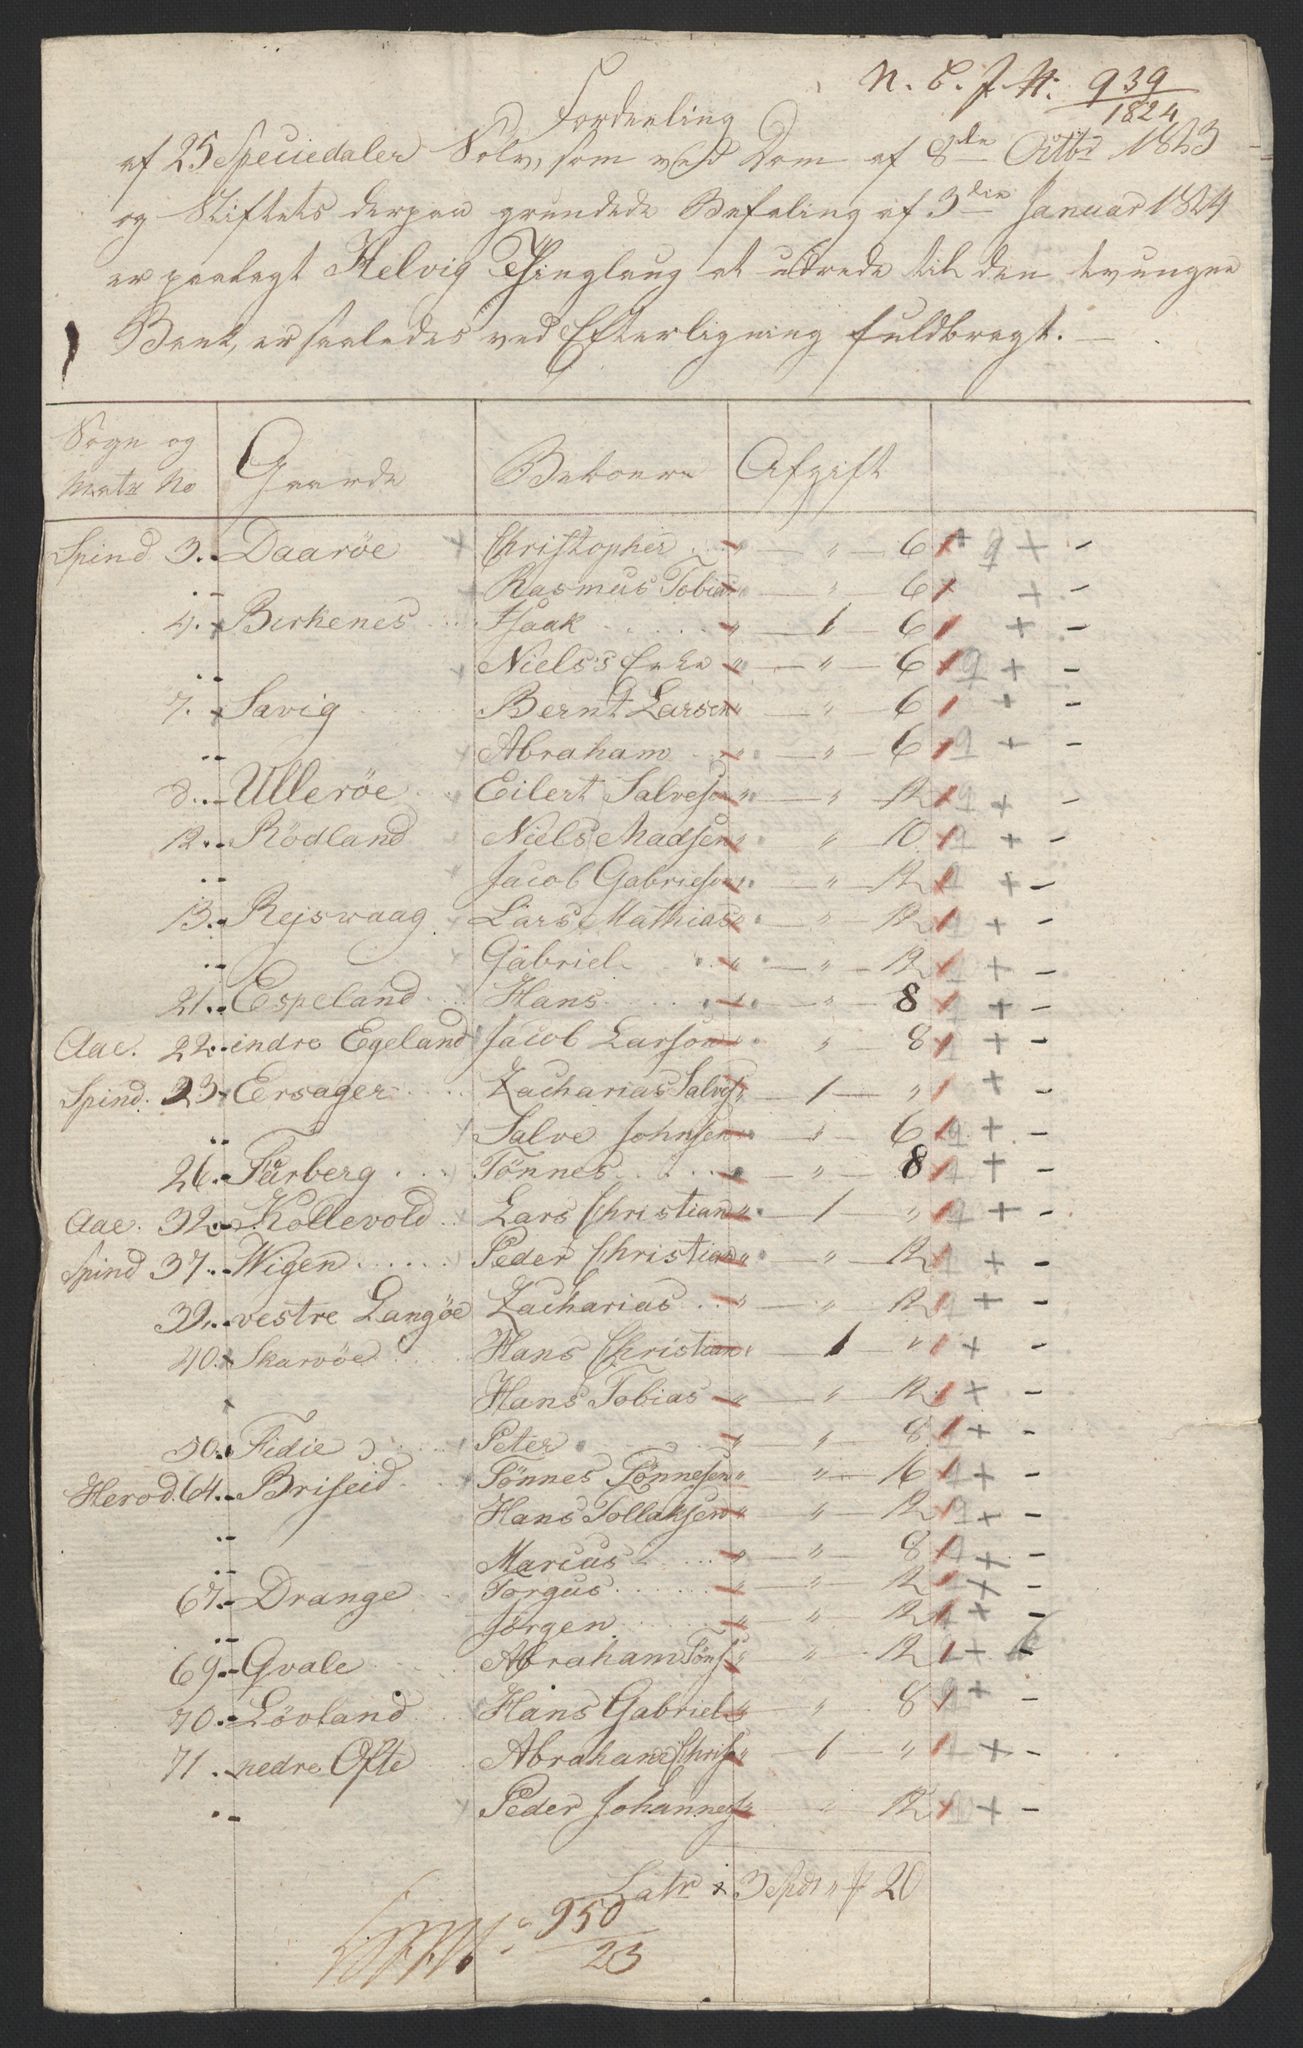 N. C. J. H: 939/1824
Fordeeling
af 25 Speciedaler Sølv, som ved Dom af 8de Octbr 1823
og Stiftets derpaa grundede Befaling af 3die Januar 1824
er paalagt Helvig Thinglaug at udrede til den tvungne
Bank, er saaledes ved Efterligning fuldbragt.
Sogn og Matr No Gaarde Beboere Afgift
Spind 3. Daarøe Christopher " " 6
" Rasmus Tobias " " 6
4. Birkenes Isaak " 1 6
" Niels's Enke " " 6
7. Savig Bernt Larsen " " 6
" Abraham " " 6
8. Ullerøe Eilert Salveson " " 12
12. Rødland Niels Madsen " " 10
" Jacob Gabrieson " " 12
13. Rejsvaag Lars Mathias " " 12
" Gabriel " " 12
21. Espeland Hans " " 8
Aae. 22. indre Egeland Jacob Larson " " 8
Spind. 23 Ersager Zacharias Salves " 1 "
" Salve Johnsen " " 6
26. Farberg Tönnes " " 8
Aae. 32. Kollevold Lars Christian " 1 "
Spind 37. Wigen Peder Christian " " 12
39. vestre Langöe Zacharias " " 12
40. Skarvöe Hans Christian " 1 "
Hans Tobias " " 12
50. Fidie Peter " " 8
Herod. 64. Briseid Tönnes Tönnesen " " 16
Hans Tollaksen " " 12
" Marcus " " 8
67. Drange Torgus " " 12
" Jörgen " " 12
69. Qvale Abraham Töns " " 12
70. Lövland Hans Gabriel " " 8
71. nedre Ofte Abraham Chris " 1 "
" Peder Johannes " " 12
Latr 3 Spdr " ß 20
950/23